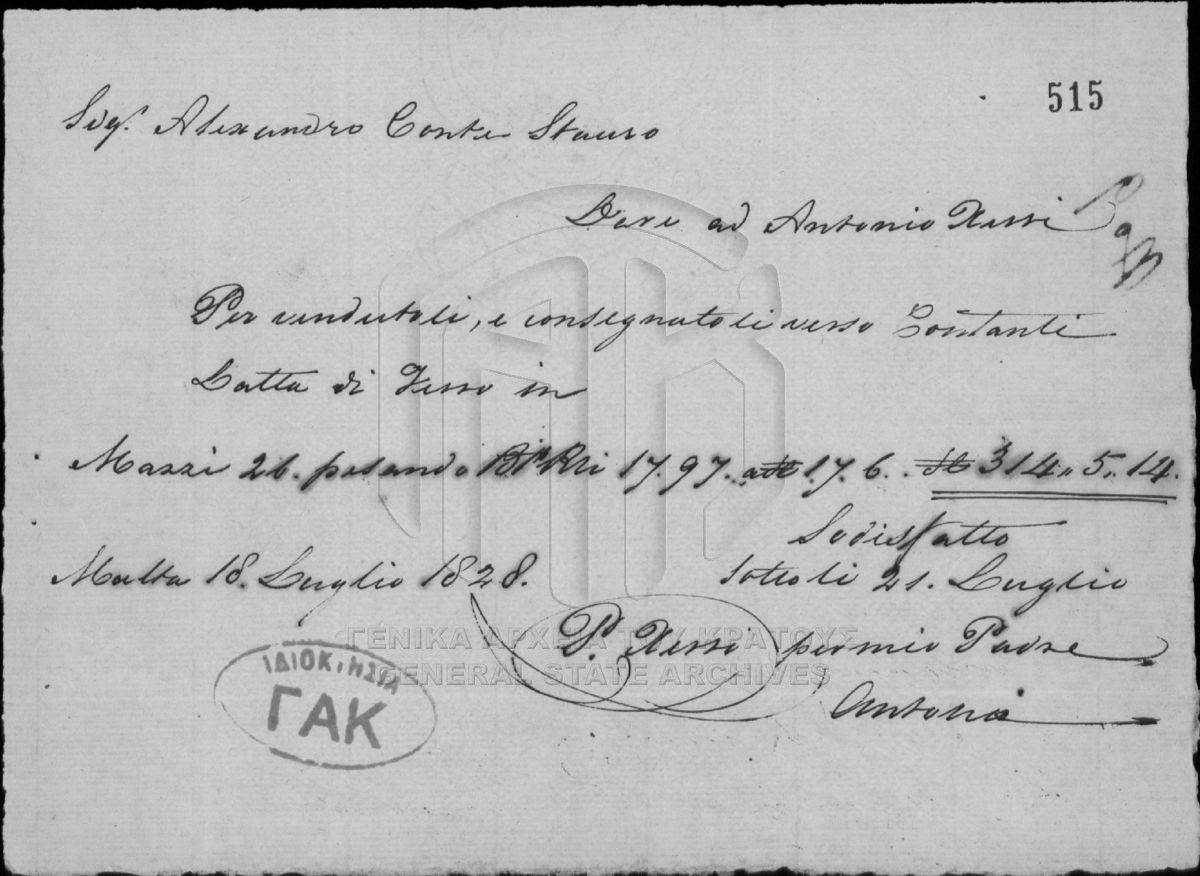 515
Sig.r Alexandro Conte Stauro
Deve ad Antonio Xerri
Per vendutoli, e consegnatoli verso Contanti
Latta di Ferro in
Mazzi 26. pesando 17.97. 17.6. 314 " 5 " 14.
Sodisfatto
Malta 18. Luglio 1828. sotto li 21. Luglio
P. Xerri per mio Padre
Antonio
ΓΕΝΙΚΑ ΑΡΧΕΙΑ ΤΟΥ ΚΡΑΤΟΥΣ
GENERAL STATE ARCHIVES
ΙΔΙΟΚΤΗΣΙΑ
ΓΑΚ